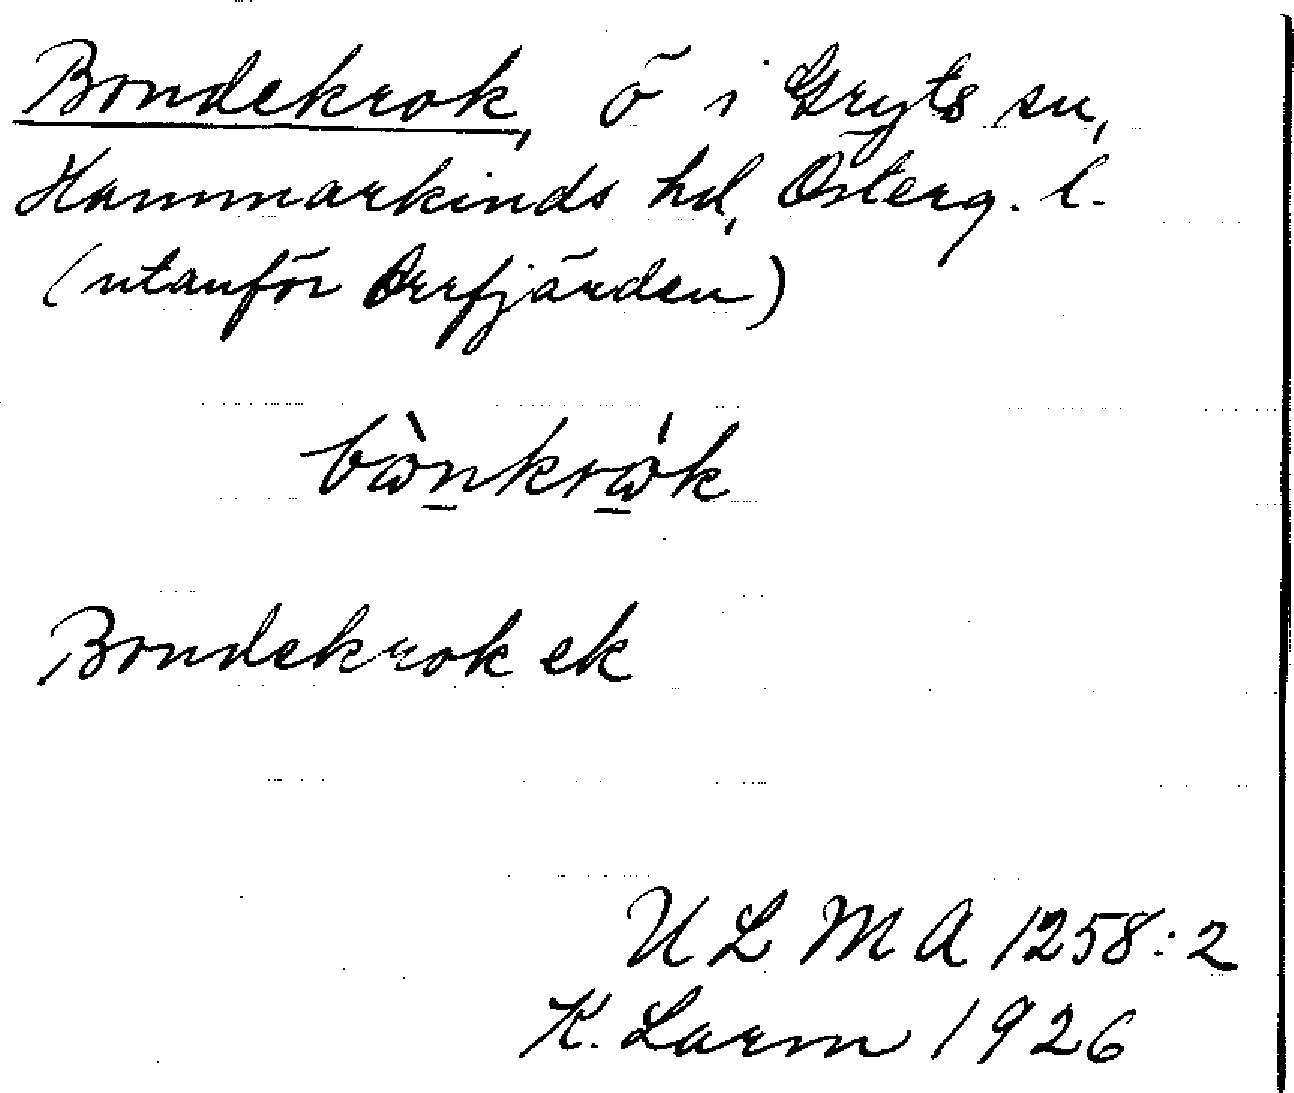 Bondekrok, ö i Gryts sn,
Hammarkinds hd, Österg. l.
(utanför Orrfjärden)
bὼn̠krώ̠k
Bondekrok ek
ULMA 1258:2
K. Larm 1926